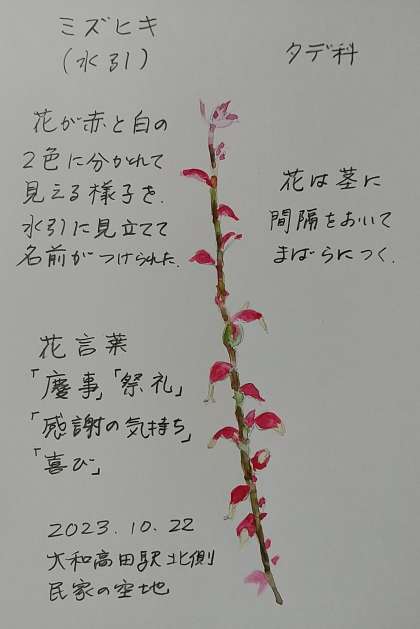 ミズヒキ
(水引)
タデ科
花が赤と白の
2色に分かれて
見える様子を、
水引に見立てて
名前がつけられた。
花は茎に
間隔をおいて
まばらにつく。
花言葉
「慶事」「祭礼」
「感謝の気持ち」
「喜び」
2023.10.22
大和高田駅北側
民家の空地